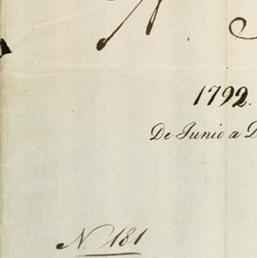 N.
1792.
De Junio a D
N. 181